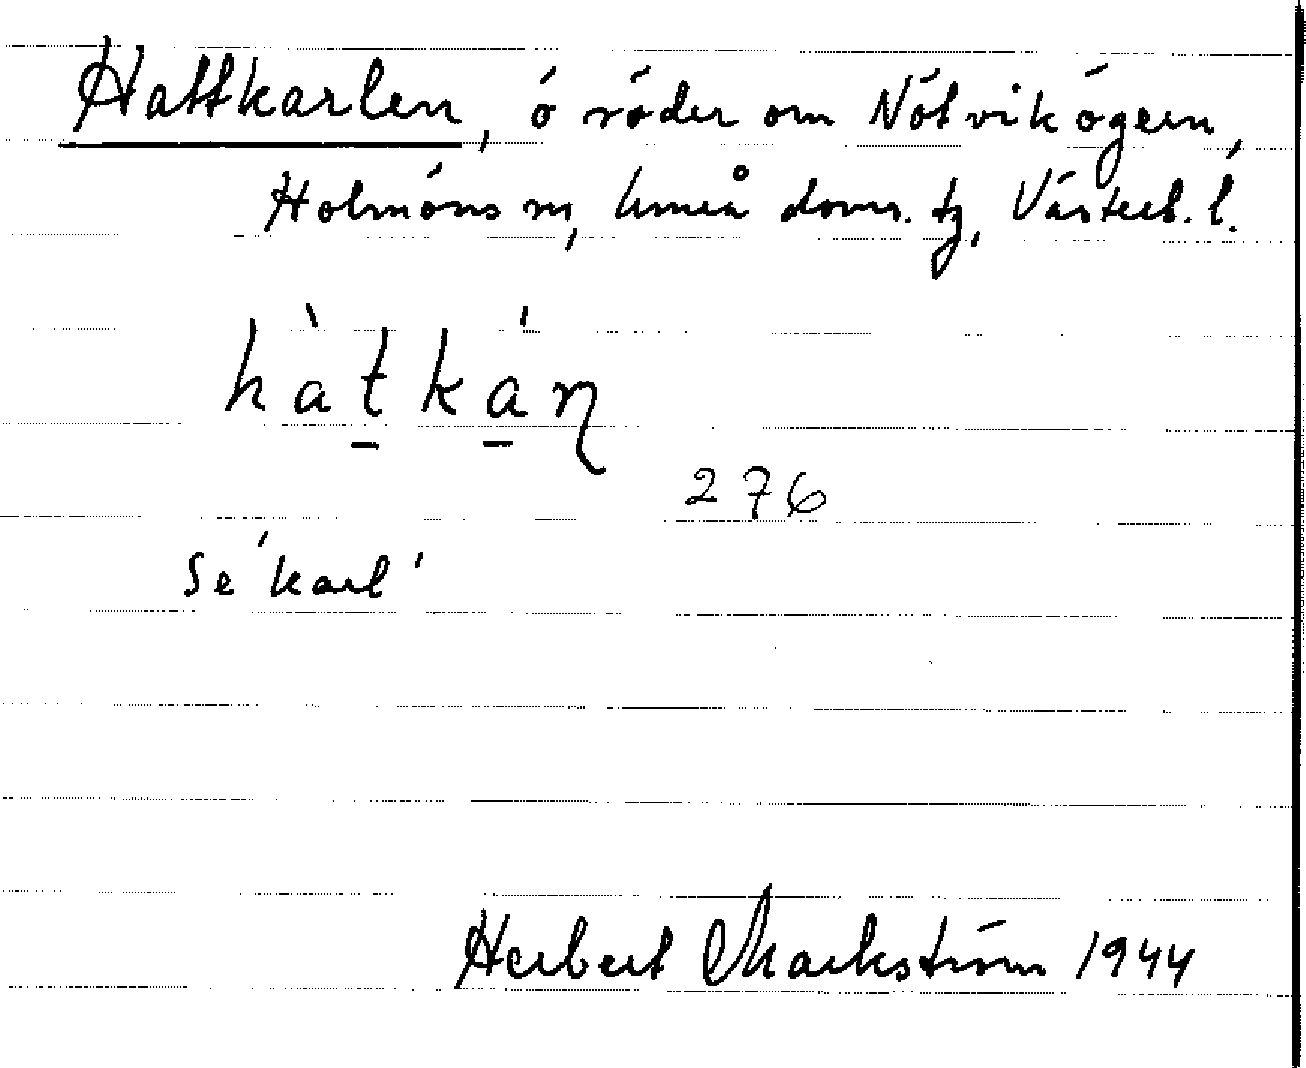 Hattkarlen, ö söder om Nötvikögern,
Holmöns sn, Umeå doms. tg, Västerb. l.
hàtkáɳ
276
Se 'karl'
Herbert Markström 1944